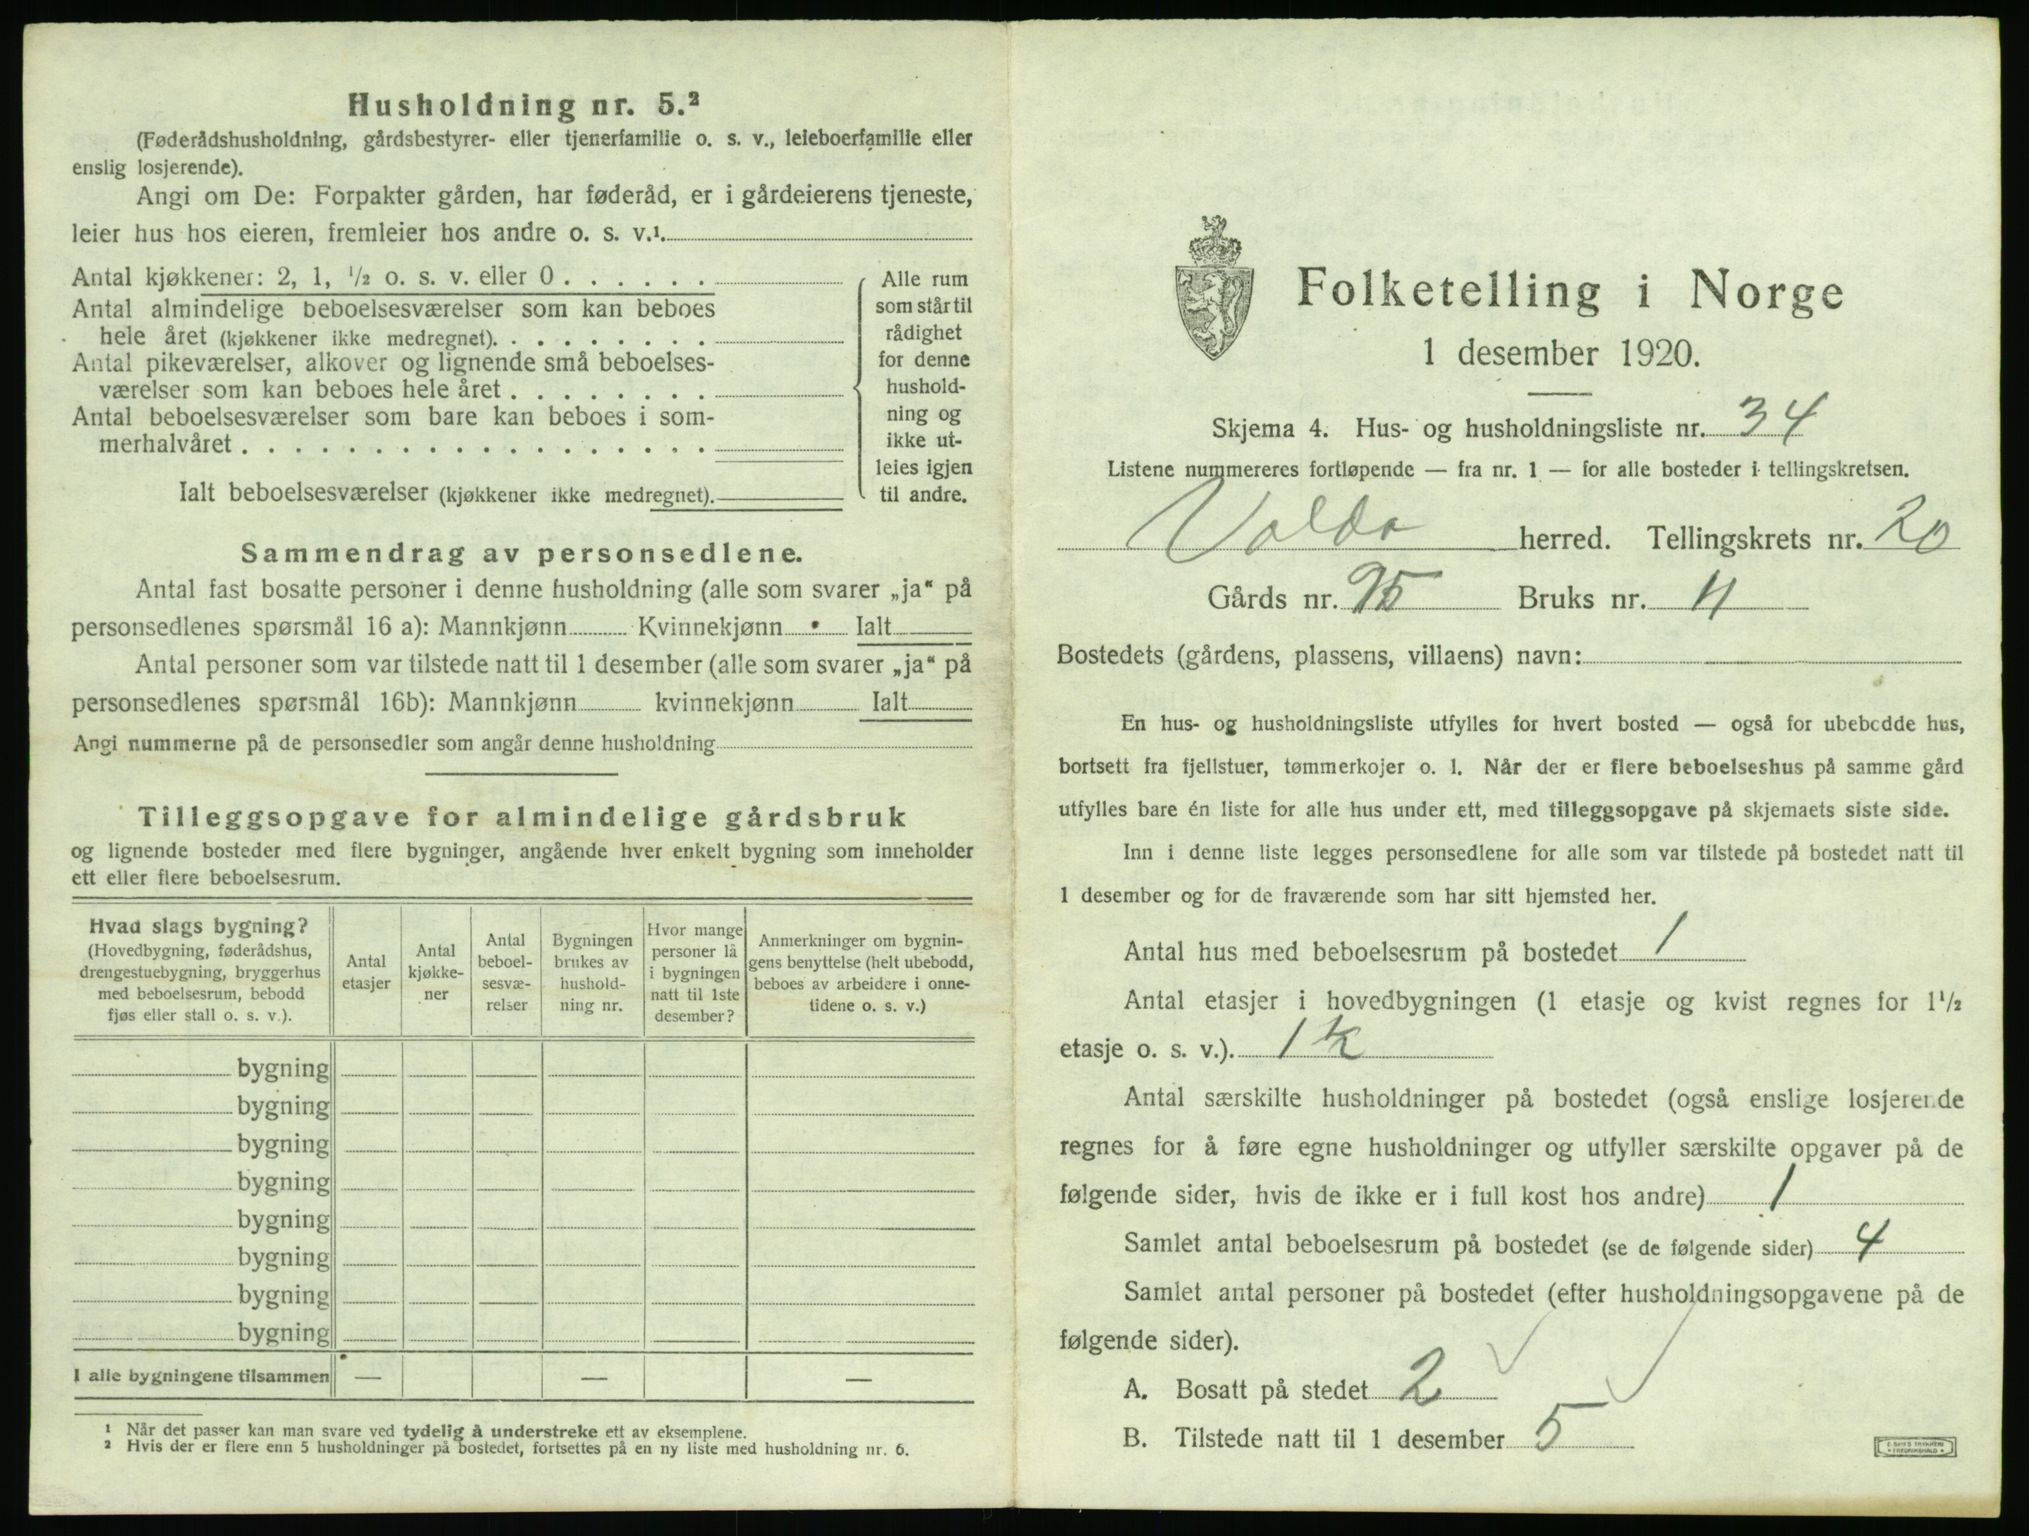 Husholdning nr. 5.²
(Føderådshusholdning, gårdsbestyrer- eller tjenerfamilie o. s. v., leieboerfamilie eller
enslig losjerende).
Angi om De: Forpakter gården, har føderåd, er i gårdeierens tjeneste,
leier hus hos eieren, fremleier hos andre o. s. v.¹
Antal kjøkkener: 2, 1, ½ o. s. v. eller 0 . . . . . .
Antal almindelige beboelsesværelser som kan beboes
hele året (kjøkkener ikke medregnet). . . . . . . . .
Antal pikeværelser, alkover og lignende små beboelses-
værelser som kan beboes hele året . . . . . . . .
Antal beboelsesværelser som bare kan beboes i som-
merhalvåret . . . . . . . . . . . . . . . . . .
Ialt beboelsesværelser (kjøkkener ikke medregnet).
Alle rum
som står til
rådighet
for denne
hushold-
ning og
ikke ut-
leies igjen
til andre.
Sammendrag av personsedlene.
Antal fast bosatte personer i denne husholdning (alle som svarer „ja“ på
personsedlenes spørsmål 16 a): Mannkjønn Kvinnekjønn Ialt
Antal personer som var tilstede natt til 1 desember (alle som svarer „ja“ på
personsedlenes spørsmål 16b): Mannkjønn kvinnekjønn Ialt
Angi nummerne på de personsedler som angår denne husholdning
Tilleggsopgave for almindelige gårdsbruk
og lignende bosteder med flere bygninger, angående hver enkelt bygning som inneholder
ett eller flere beboelsesrum.
Hvad slags bygning?
(Hovedbygning, føderådshus,
drengestuebygning, bryggerhus
med beboelsesrum, bebodd
fjøs eller stall o. s. v.).
Antal
etasjer
Antal
kjøkke-
ner
Antal
beboel-
sesvæ-
relser
Bygningen
brukes av
hushold-
ning nr.
Hvor mange
personer lå
i bygningen
natt til 1ste
desember?
Anmerkninger om bygnin-
gens benyttelse (helt ubebodd,
beboes av arbeidere i onne-
tidene o. s. v.)
bygning
bygning
bygning
bygning
bygning
bygning
bygning
bygning
I alle bygningene tilsammen — — —
¹ Når det passer kan man svare ved tydelig å understreke ett av eksemplene.
² Hvis der er flere enn 5 husholdninger på bostedet, fortsettes på en ny liste med husholdning nr. 6.
Folketelling i Norge
1 desember 1920.
Skjema 4. Hus- og husholdningsliste nr. 34
Listene nummereres fortløpende — fra nr. 1 — for alle bosteder i tellingskretsen.
Volda herred. Tellingskrets nr. 20
Gårds nr. 95 Bruks nr. 11
Bostedets (gårdens, plassens, villaens) navn:
En hus- og husholdningsliste utfylles for hvert bosted — også for ubebodde hus,
bortsett fra fjellstuer, tømmerkojer o. l. Når der er flere beboelseshus på samme gård
utfylles bare én liste for alle hus under ett, med tilleggsopgave på skjemaets siste side.
Inn i denne liste legges personsedlene for alle som var tilstede på bostedet natt til
1 desember og for de fraværende som har sitt hjemsted her.
Antal hus med beboelsesrum på bostedet 1
Antal etasjer i hovedbygningen (1 etasje og kvist regnes for 1½
etasje o. s. v.). 1 k
Antal særskilte husholdninger på bostedet (også enslige losjerende
regnes for å føre egne husholdninger og utfyller særskilte opgaver på de
følgende sider, hvis de ikke er i full kost hos andre) 1
Samlet antal beboelsesrum på bostedet (se de følgende sider) 4
Samlet antal personer på bostedet (efter husholdningsopgavene på de
følgende sider).
A. Bosatt på stedet 2
B. Tilstede natt til 1 desember 5